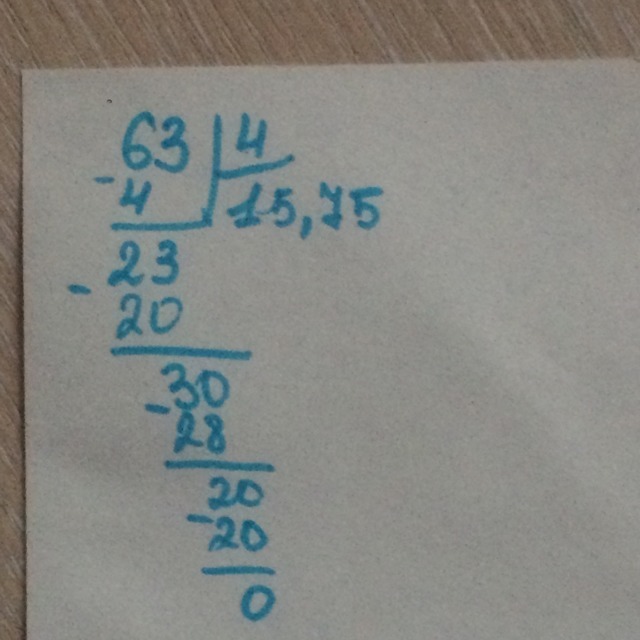 63 4
- 4 15,75
- 23
20
- 30
28
20
- 20
0